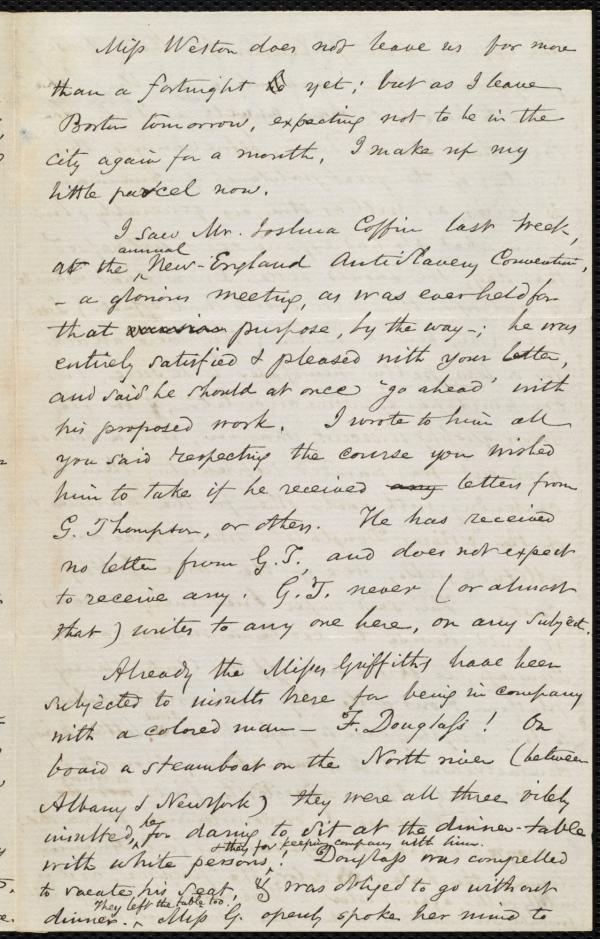 Miss Weston does not leave us for more
than a fortnight yet; but as I leave
Boston tomorrow, expecting not to be in the
city again for a month, I make up my
little parcel now.
I saw Mr. Joshua Coffin last week,
at the annual New-England AntiSlavery Convention,
- a glorious meeting, as was ever held for
that occasion purpose, by the way -; he was
entirely satisfied & pleased with your letter,
and said he should at once 'go ahead' with
his proposed work. I wrote to him all
you said respecting the course you wished
him to take if he received any letters from
G. Thompson, or others. He has received
no letter from G.T., and does not expect
to receive any. G.T. never (or almost
that) writes to any one here, on any subject.
Already the Misses Griffiths have been
subjected to insults here for being in company
with a colored man - F. Douglass! On
board a steamboat on the North river (between
Albany & New York) they were all three vilely
insulted, he for daring to sit at the dinner-table
with white persons, & they for keeping company with him! Douglass was compelled
to vacate his seat, & was obliged to go without
dinner. They left the table too. Miss G. openly spoke her mind to